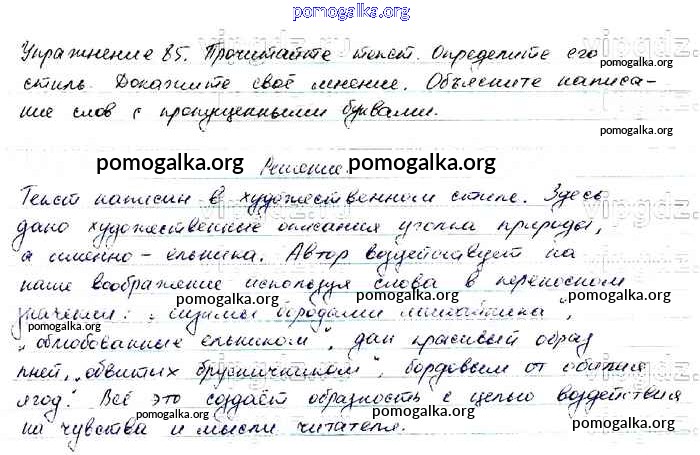 pomogalka.org
Упражнение 85. Прочитайте текст. Определите его
стиль. Докажите своё мнение. Объясните написа-
ние слов с пропущенными буквами.
pomogalka.org
pomogalka.org Решение. pomogalka.org
Текст написан в художественном стиле. Здесь
дано художественные описания уголка природы,
а именно - ельника. Автор воздействует на
наше воображение используя слова в переносном
pomogalka.org pomogalka.org
значении: "сизыми бродами", "
pomogalka.org
"облюбованные ельником", дан красивый образ
пней, "обвитых брусничником", бордовым от обилия
pomogalka.org
ягод". Всё это создаёт образность с целью воздействия
pomogalka.org pomogalka.org
на чувства и мысли читателя.